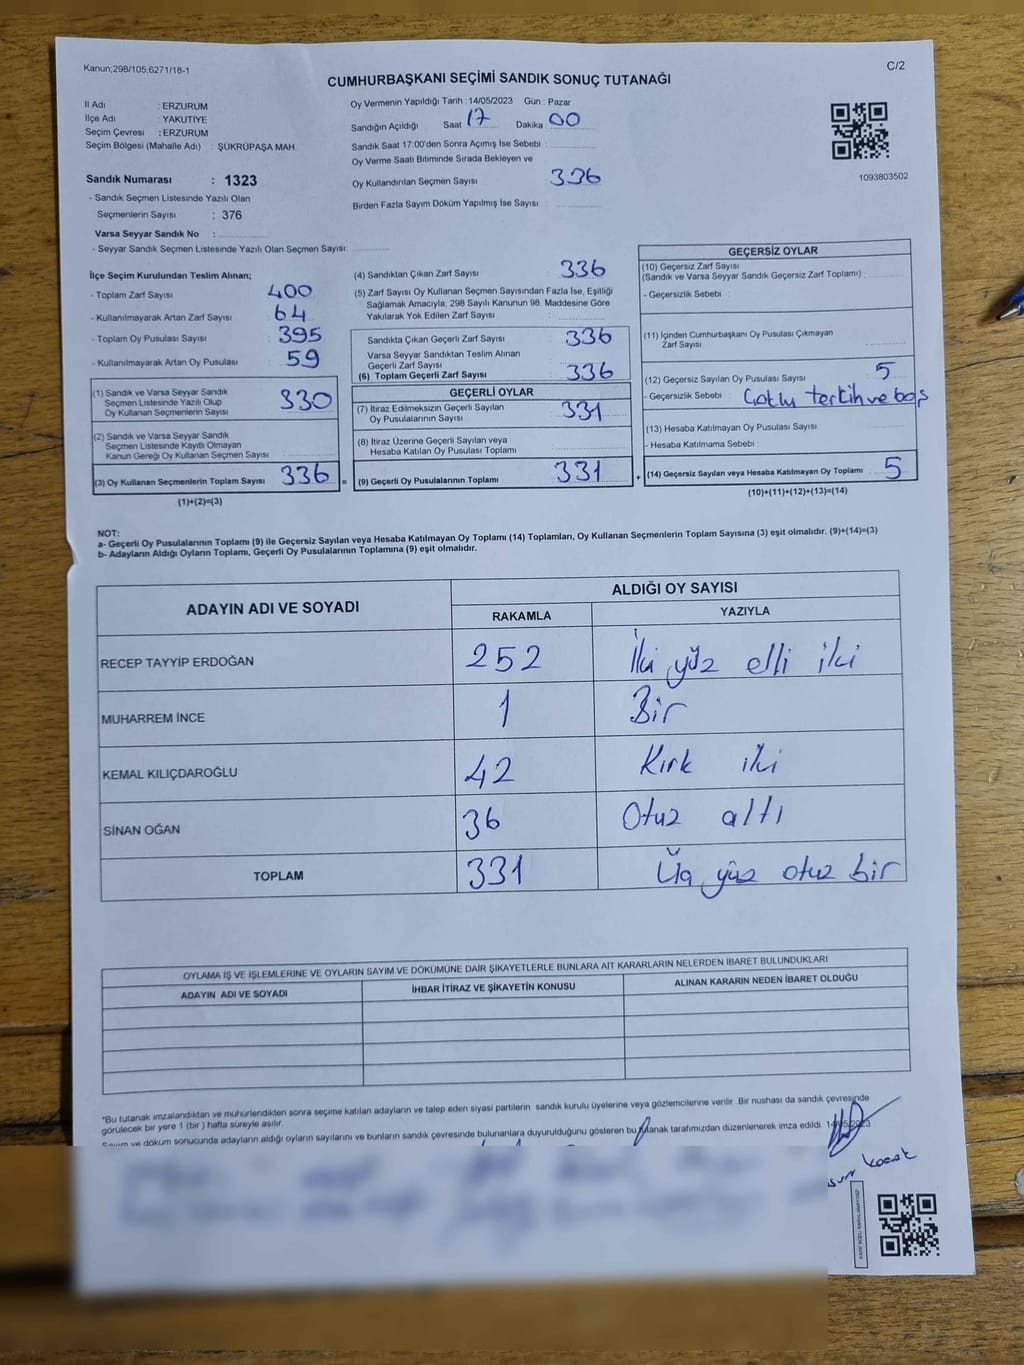 Kanun;298/105;6271/18-1
C/2
CUMHURBAŞKANI SEÇİMİ SANDIK SONUÇ TUTANAĞI
İl Adı : ERZURUM
İlçe Adı : YAKUTİYE
Seçim Çevresi : ERZURUM
Seçim Bölgesi (Mahalle Adı) : ŞÜKRÜPAŞA MAH.
Sandık Numarası : 1323
- Sandık Seçmen Listesinde Yazılı Olan
Seçmenlerin Sayısı : 376
Varsa Seyyar Sandık No :
- Seyyar Sandık Seçmen Listesinde Yazılı Olan Seçmen Sayısı:
Oy Vermenin Yapıldığı Tarih : 14/05/2023 Gün : Pazar
Sandığın Açıldığı Saat : 17 Dakika : 00
Sandık Saat 17:00'den Sonra Açımış İse Sebebi :
Oy Verme Saati Bitiminde Sırada Bekleyen ve
Oy Kullandırılan Seçmen Sayısı : 336
Birden Fazla Sayım Döküm Yapılmış İse Sayısı :
1093803502
İlçe Seçim Kurulundan Teslim Alınan;
- Toplam Zarf Sayısı 400
- Kullanılmayarak Artan Zarf Sayısı 64
- Toplam Oy Pusulası Sayısı 395
- Kullanılmayarak Artan Oy Pusulası 59
(1) Sandık ve Varsa Seyyar Sandık
Seçmen Listesinde Yazılı Olup
Oy Kullanan Seçmenlerin Sayısı 330
(2) Sandık ve Varsa Seyyar Sandık
Seçmen Listesinde Kayıtlı Olmayan
Kanun Gereği Oy Kullanan Seçmen Sayısı
(3) Oy Kullanan Seçmenlerin Toplam Sayısı 336 =
(1)+(2)=(3)
(4) Sandıktan Çıkan Zarf Sayısı 336
(5) Zarf Sayısı Oy Kullanan Seçmen Sayısından Fazla İse, Eşitliği
Sağlamak Amacıyla, 298 Sayılı Kanunun 98. Maddesine Göre
Yakılarak Yok Edilen Zarf Sayısı :
Sandıkta Çıkan Geçerli Zarf Sayısı 336
Varsa Seyyar Sandıktan Teslim Alınan
Geçerli Zarf Sayısı
(6) Toplam Geçerli Zarf Sayısı 336
GEÇERLİ OYLAR
(7) İtiraz Edilmeksizin Geçerli Sayılan
Oy Pusulalarının Sayısı 331
(8) İtiraz Üzerine Geçerli Sayılan veya
Hesaba Katılan Oy Pusulası Toplamı
(9) Geçerli Oy Pusulalarının Toplamı 331 +
GEÇERSİZ OYLAR
(10) Geçersiz Zarf Sayısı
(Sandık ve Varsa Seyyar Sandık Geçersiz Zarf Toplamı)
- Geçersizlik Sebebi :
(11) İçinden Cumhurbaşkanı Oy Pusulası Çıkmayan
Zarf Sayısı
(12) Geçersiz Sayılan Oy Pusulası Sayısı 5
- Geçersizlik Sebebi : Çoklu tercih ve boş
(13) Hesaba Katılmayan Oy Pusulası Sayısı
- Hesaba Katılmama Sebebi
(14) Geçersiz Sayılan veya Hesaba Katılmayan Oy Toplamı 5
(10)+(11)+(12)+(13)=(14)
NOT:
a- Geçerli Oy Pusulalarının Toplamı (9) ile Geçersiz Sayılan veya Hesaba Katılmayan Oy Toplamı (14) Toplamları, Oy Kullanan Seçmenlerin Toplam Sayısına (3) eşit olmalıdır. (9)+(14)=(3)
b- Adayların Aldığı Oyların Toplamı, Geçerli Oy Pusulalarının Toplamına (9) eşit olmalıdır.
ADAYIN ADI VE SOYADI
ALDIĞI OY SAYISI
RAKAMLA YAZIYLA
RECEP TAYYİP ERDOĞAN 252 İki yüz elli iki
MUHARREM İNCE 1 Bir
KEMAL KILIÇDAROĞLU 42 Kırk iki
SİNAN OĞAN 36 Otuz altı
TOPLAM 331 Üç yüz otuz bir
OYLAMA İŞ VE İŞLEMLERİNE VE OYLARIN SAYIM VE DÖKÜMÜNE DAİR ŞİKAYETLERLE BUNLARA AİT KARARLARIN NELERDEN İBARET BULUNDUKLARI
ADAYIN ADI VE SOYADI İHBAR İTİRAZ VE ŞİKAYETİN KONUSU ALINAN KARARIN NEDEN İBARET OLDUĞU
*Bu tutanak imzalandıktan ve mühürlendikten sonra seçime katılan adayların ve talep eden siyasi partilerin sandık kurulu üyelerine veya gözlemcilerine verilir. Bir nüshası da sandık çevresinde
görülecek bir yere 1 (bir ) hafta süreyle asılır.
Sayım ve döküm sonucunda adayların aldığı oyların sayılarını ve bunların sandık çevresinde bulunanlara duyurulduğunu gösteren bu tutanak tarafımızdan düzenlenerek imza edildi. 14/05/2023